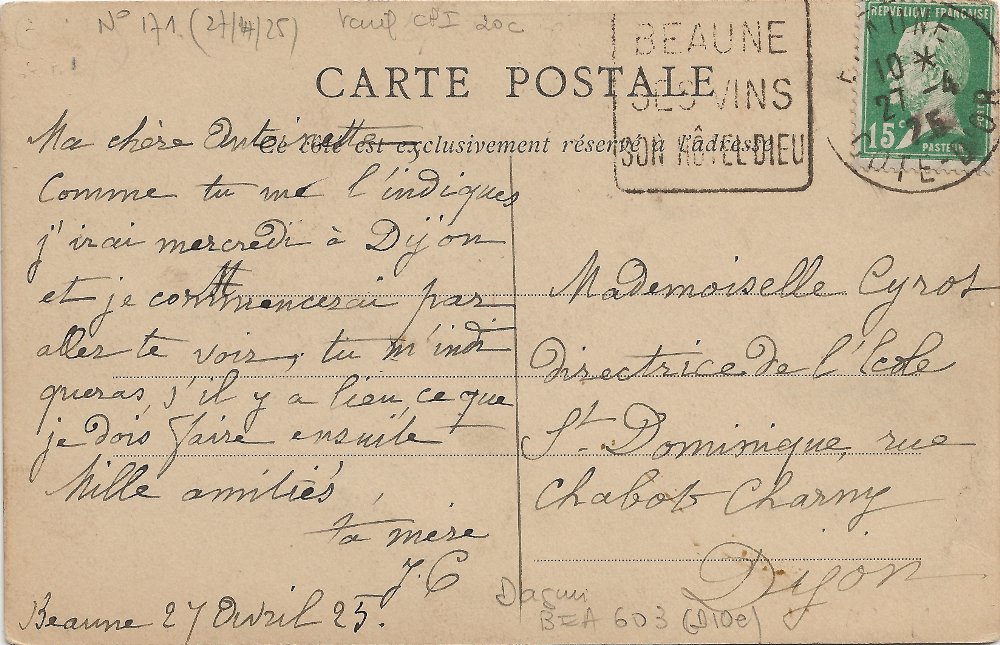 N° 171. (27/4/25) tarif CPI 20c
BEAUNE
SES VINS
SON HÔTEL-DIEU
REPUBLIQUE FRANÇAISE
15c
PASTEUR
10 *
27 -4
25
COTE-D'OR
CARTE POSTALE
Ce côté est exclusivement réservé à l'adresse
Ma chère Antoinette
Comme tu me l'indiques
j'irai mercredi à Dijon
et je commencerai par
aller te voir, tu m'indi
queras s'il y a lieu ce que
je dois faire ensuite
Mille amitiés,
ta mère
J. C
Beaune 27 Avril 25.
Mademoiselle Cyrot
directrice de l'École
St. Dominique, rue
Chabot Charny
Dijon
Daguin
BEA 603 (D10e)